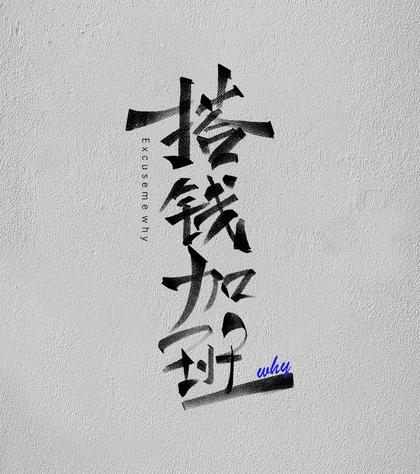 搭钱加班
Excuseme why
why